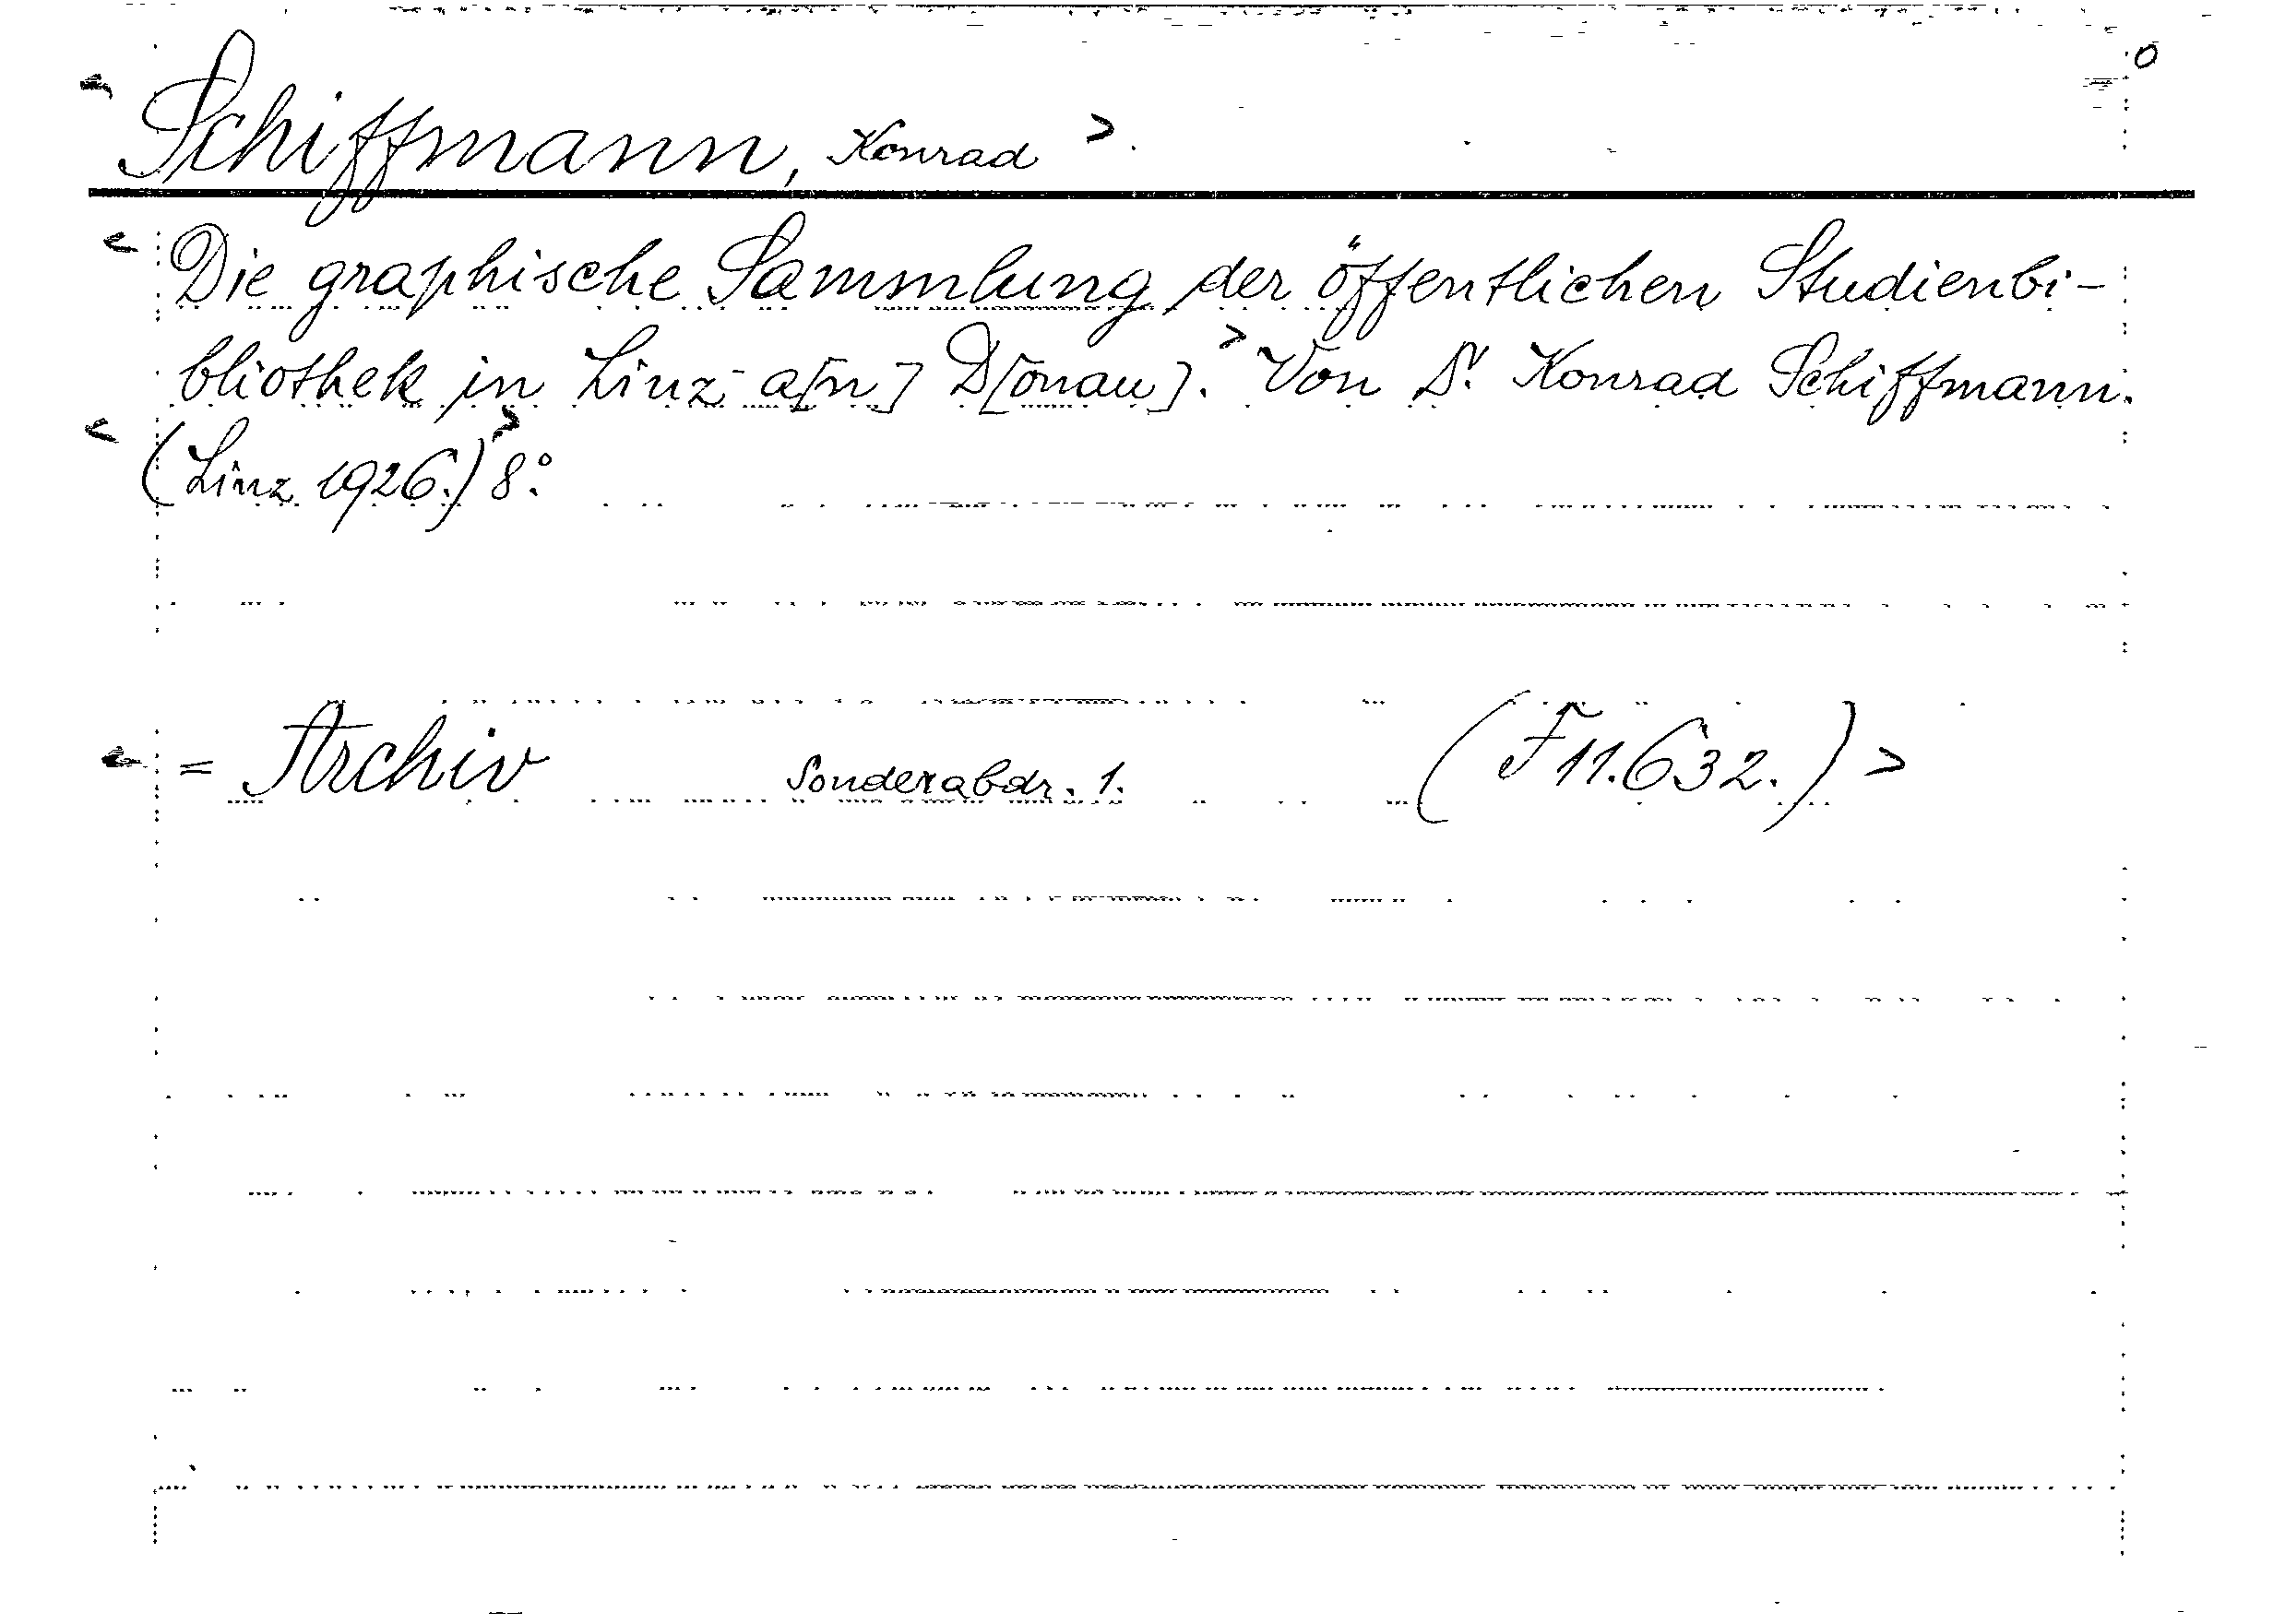 0
< Schiffmann, Konrad >.
< Die graphische Sammlung der öffentlichen Studienbi-
bliothek in Linz a[n] D[onau].> Von Dr. Konrad Schiffmann.
< (Linz 1926.)> 8°.
< = Archiv Sonderabdr. 1. (F 11.632.) >